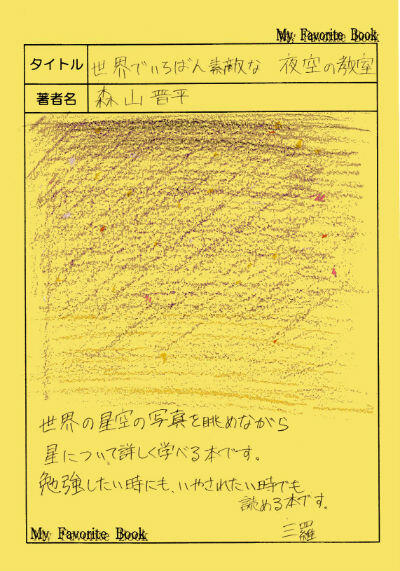 My Favorite Book
タイトル 世界でいちばん素敵な 夜空の教室
著者名 森山晋平
世界の星空の写真を眺めながら
星について詳しく学べる本です。
勉強したい時にも、いやされたい時でも
読める本です。
三羅
My Favorite Book